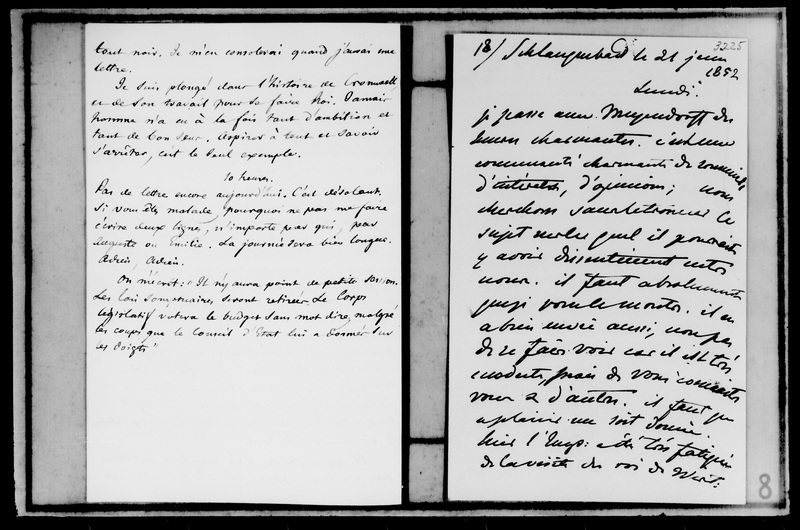 tout noir. Je m'en consolerai quand j'aurai une
lettre.
Je suis plongé dans l'histoire de Cromwell
et de son travail pour se faire Roi. Jamais
homme n'a eu à la fois tant d'ambition et
tant de bon sens. Aspirer à tout et savoir
s'arrêter, c'est le seul exemple.
10 heures.
Pas de lettre encore aujourd'hui. C'est désolant.
Si vous êtes malade, pourquoi ne pas me faire
écrire deux lignes, n'importe par qui, par
Auguste ou Emilie. La journée sera bien longue.
Adieu, Adieu.
On m'écrit: "Il n'y aura point de petite session.
Les lois somptuaires seront retirées. Le Corps
législatif votera le budget sans mot dire, malgré
les coups que le Conseil d'Etat lui a donnés sur
les doigts"
3225
18/ Schlangenbad le 21 juin
1852
Lundi.
je passe avec Meyendorff des
heures charmantes. c'est une
communauté charmante de souvenirs,
d'intérêts, d'opinions; nous
cherchons le
sujet sur le quel il pourrait
y avoir dissentiment entre
nous. il faut absolument
que je vous le montre. il en
a bien envie aussi, non pas
de se faire voir car il est très
modeste, mais de vous connaitre
vous & d'autres. il faut que
ce plaisir me soit donné.
hier l'Imp: a été très fatiguée
de la visite du roi de Wert:
8